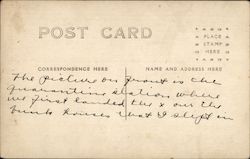 POST CARD
PLACE
STAMP
HERE
CORRESPONDENCE HERE
NAME AND ADDRESS HERE
The Picture on front is the
quarantine station where
we first landed the x our the
bunk houses that I slept in